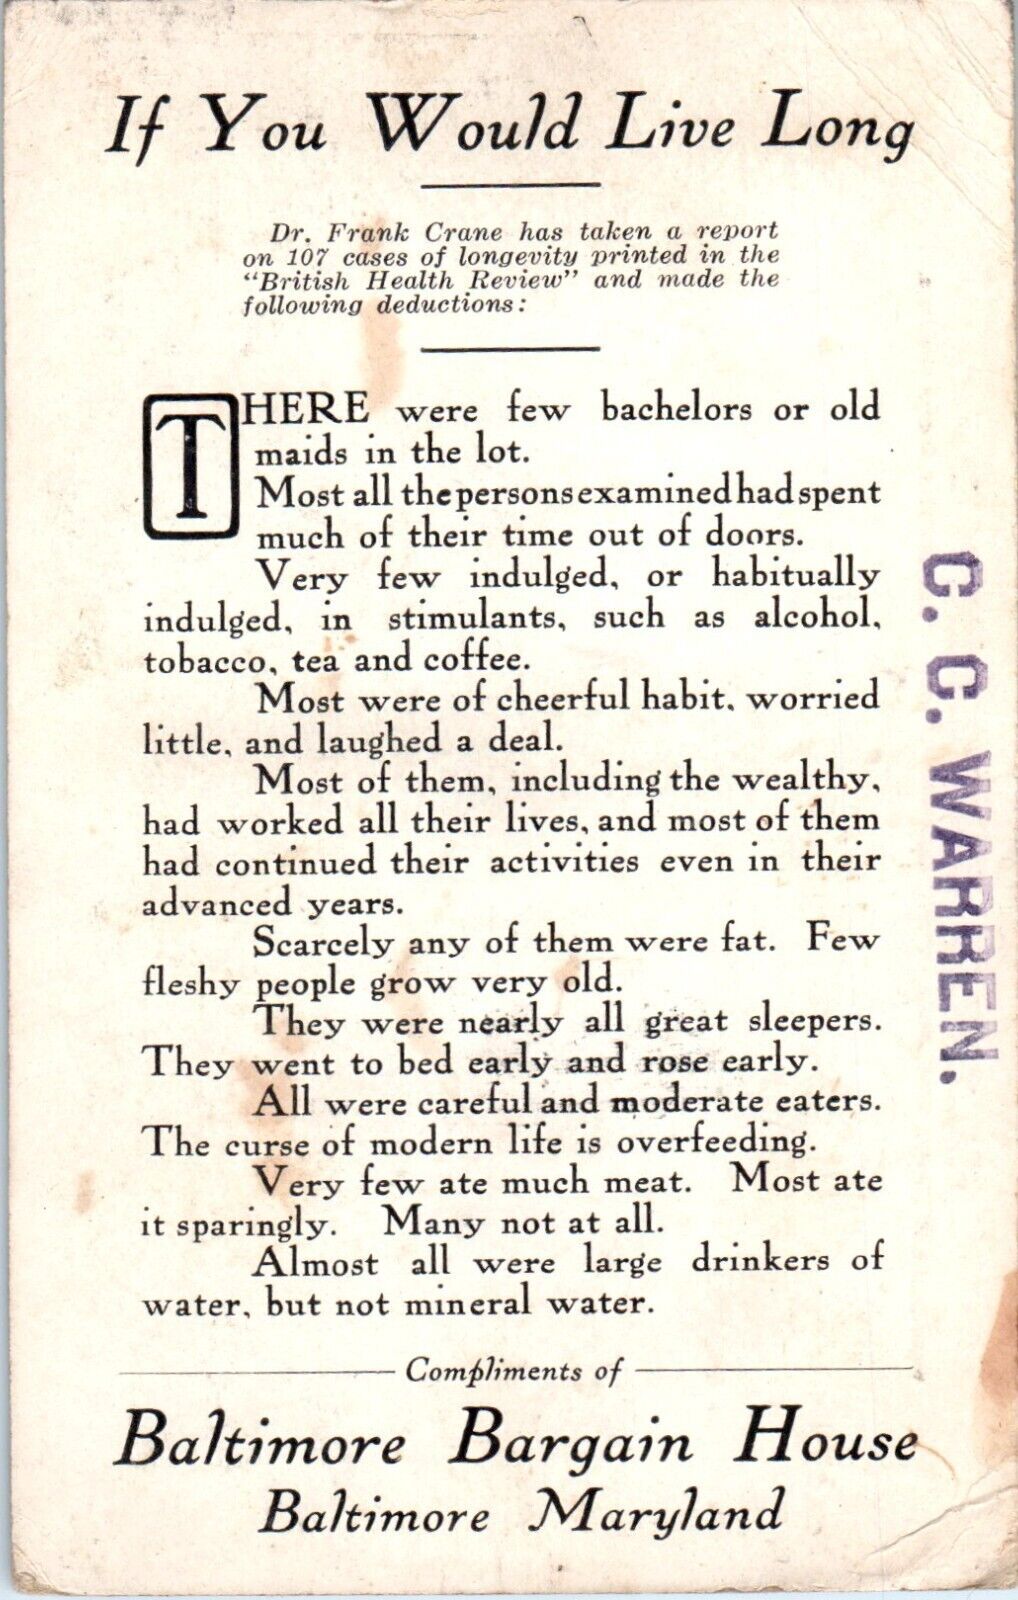 If You Would Live Long
Dr. Frank Crane has taken a report
on 107 cases of longevity printed in the
“British Health Review” and made the
following deductions:
THERE were few bachelors or old
maids in the lot.
Most all the persons examined had spent
much of their time out of doors.
Very few indulged, or habitually
indulged, in stimulants, such as alcohol,
tobacco, tea and coffee.
Most were of cheerful habit, worried
little, and laughed a deal.
Most of them, including the wealthy,
had worked all their lives, and most of them
had continued their activities even in their
advanced years.
Scarcely any of them were fat. Few
fleshy people grow very old.
They were nearly all great sleepers.
They went to bed early and rose early.
All were careful and moderate eaters.
The curse of modern life is overfeeding.
Very few ate much meat. Most ate
it sparingly. Many not at all.
Almost all were large drinkers of
water, but not mineral water.
Compliments of
Baltimore Bargain House
Baltimore Maryland
C. C. WARREN.